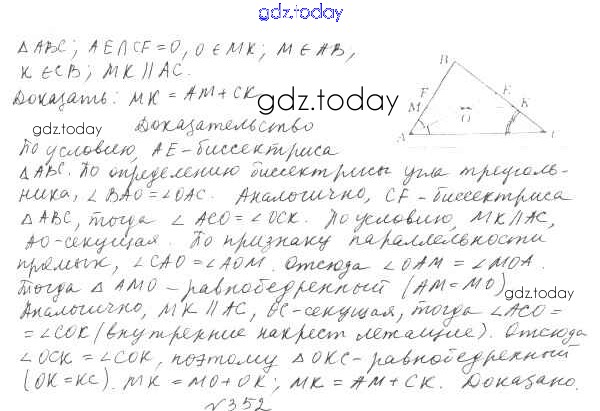 gdz.today
△ABC; AE∩CF=O, O∈MK; M∈AB,
K∈CB; MK∥AC.
Доказать: MK = AM+CK
gdz.today
gdz.today
Доказательство
По условию, AE-биссектриса
△ABC. По определению биссектрисы угла треуголь-
ника, ∠BAO=∠OAC. Аналогично, CF-биссектриса
△ABC, тогда ∠ACO=∠OCK. По условию, MK∥AC,
AO-секущая. По признаку параллельности
прямых, ∠CAO=∠AOM. Отсюда ∠OAM=∠MOA.
Тогда △AMO-равнобедренный (AM=MO)
gdz.today
Аналогично, MK∥AC, OC-секущая, тогда ∠ACO=
=∠COK (внутренние накрест лежащие). Отсюда
∠OCK=∠COK, поэтому △OKC-равнобедренный
(OK=KC). MK=MO+OK; MK=AM+CK. Доказано.
№352
B
F
E
M
K
O
A
C